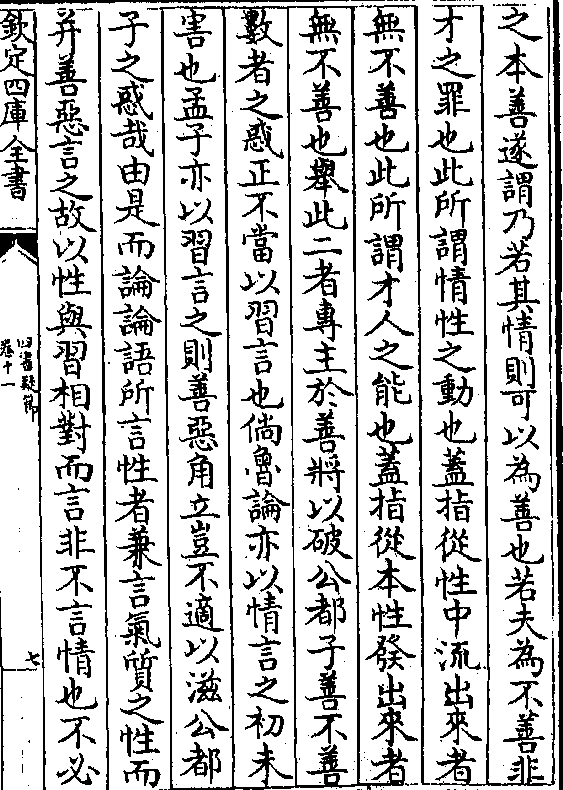 之本善遂謂乃若其情則可以為善也若夫為不善非
才之罪也此所謂情性之動也蓋指從性中流出來者
無不善也此所謂才人之能也蓋指從本性發出來者
無不善也舉此二者專主於善將以破公都子善不善
數者之惑正不當以習言也倘魯論亦以情言之初未
害也孟子亦以習言之則善惡角立豈不適以滋公都
子之惑哉由是而論論語所言性者兼言氣質之性而
并善惡言之故以性與習相對而言非不言情也不必
欽定四庫全書
四書疑節
卷十一
七